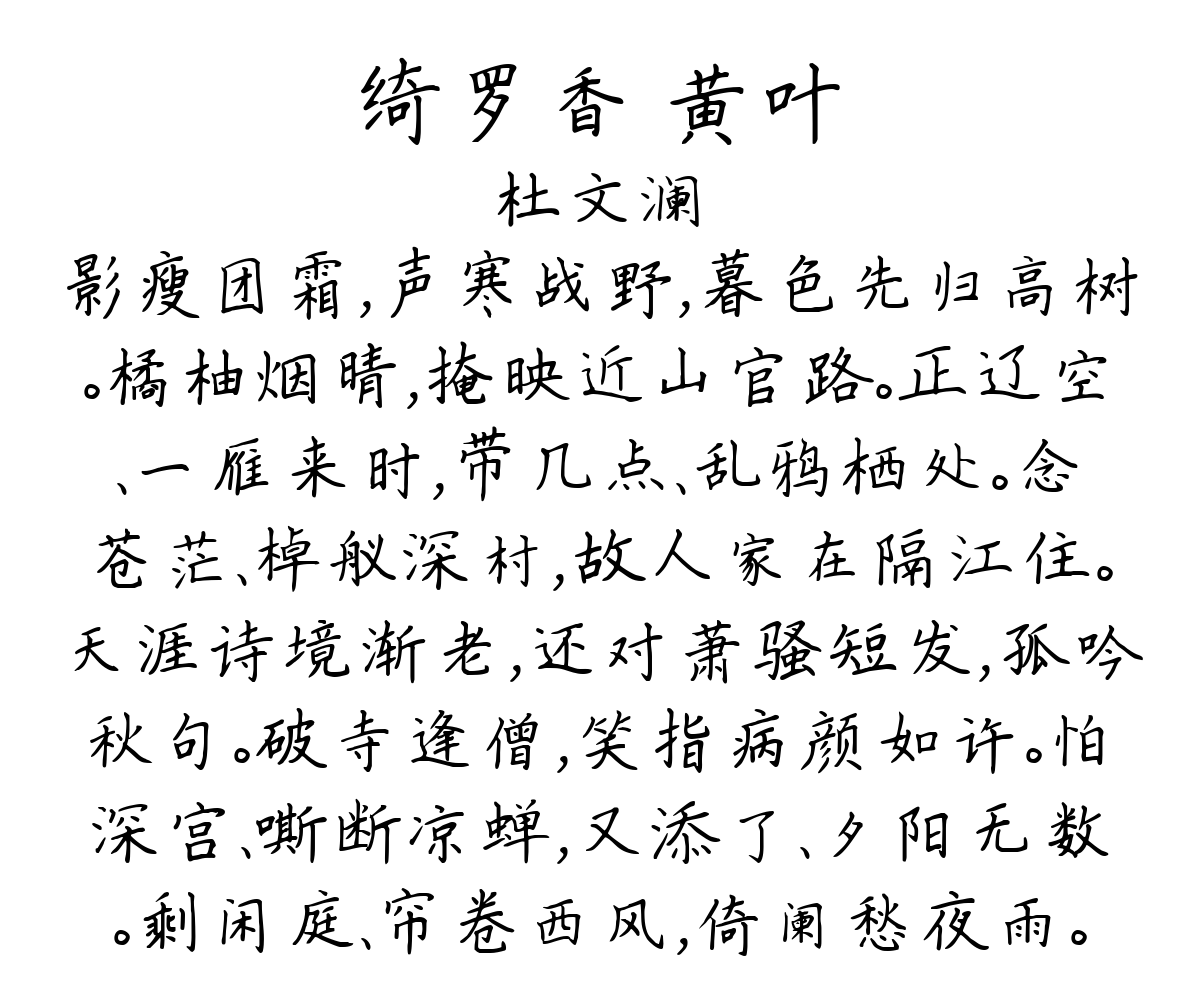 绮罗香 黄叶
杜文澜
影瘦团霜,声寒战野,暮色先归高树
。橘柚烟晴,掩映近山官路。正辽空
、一雁来时,带几点、乱鸦栖处。念
苍茫、棹舣深村,故人家在隔江住。
天涯诗境渐老,还对萧骚短发,孤吟
秋句。破寺逢僧,笑指病颜如许。怕
深宫、嘶断凉蝉,又添了、夕阳无数
。剩闲庭、帘卷西风,倚阑愁夜雨。